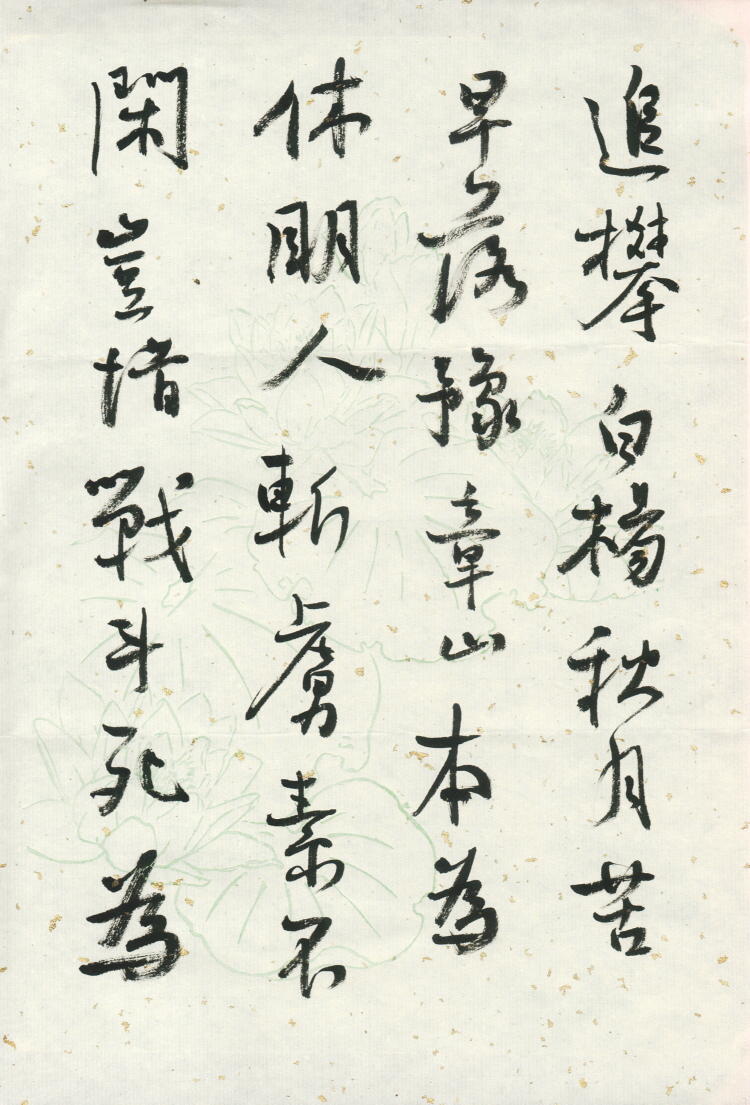 追攀白楊秋月苦
早落豫章山本為
休明人斬虜素不
閑豈惜戰斗死為